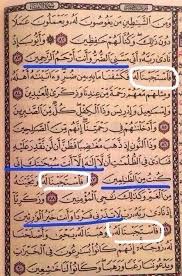 وَمِنَ ٱلشَّيَٰطِينِ مَن يَغُوصُونَ لَهُۥ وَيَعْمَلُونَ عَمَلًا
دُونَ ذَٰلِكَ وَكُنَّا لَهُمْ حَٰفِظِينَ ٨٢ وَأَيُّوبَ إِذْ
نَادَىٰ رَبَّهُۥٓ أَنِّى مَسَّنِىَ ٱلضُّرُّ وَأَنتَ أَرْحَمُ
فَٱسْتَجَبْنَا لَهُۥ فَكَشَفْنَا مَا بِهِۦ مِن ضُرٍّ وَءَاتَيْنَٰهُ أَهْلَهُۥ
وَمِثْلَهُم مَّعَهُمْ رَحْمَةً مِّنْ عِندِنَا وَذِكْرَىٰ
وَإِسْمَٰعِيلَ وَإِدْرِيسَ وَذَا ٱلْكِفْلِ كُلٌّ مِّنَ ٱلصَّٰبِرِينَ
وَأَدْخَلْنَٰهُمْ فِى رَحْمَتِنَآ إِنَّهُم مِّنَ ٱلصَّٰلِحِينَ
وَذَا ٱلنُّونِ إِذ ذَّهَبَ مُغَٰضِبًا فَظَنَّ أَن لَّن نَّقْدِرَ عَلَيْهِ
فَنَادَىٰ فِى ٱلظُّلُمَٰتِ أَن لَّآ إِلَٰهَ إِلَّآ أَنتَ سُبْحَٰنَكَ إِنِّى
كُنتُ مِنَ ٱلظَّٰلِمِينَ ٨٧ فَٱسْتَجَبْنَا لَهُۥ وَنَجَّيْنَٰهُ
مِنَ ٱلْغَمِّ وَكَذَٰلِكَ نُـۨجِى ٱلْمُؤْمِنِينَ ٨٨ وَزَكَرِيَّآ
إِذْ نَادَىٰ رَبَّهُۥ رَبِّ لَا تَذَرْنِى فَرْدًا وَأَنتَ خَيْرُ ٱلْوَٰرِثِينَ
فَٱسْتَجَبْنَا لَهُۥ وَوَهَبْنَا لَهُۥ يَحْيَىٰ وَأَصْلَحْنَا لَهُۥ
زَوْجَهُۥٓ إِنَّهُمْ كَانُوا۟ يُسَٰرِعُونَ فِى ٱلْخَيْرَٰتِ